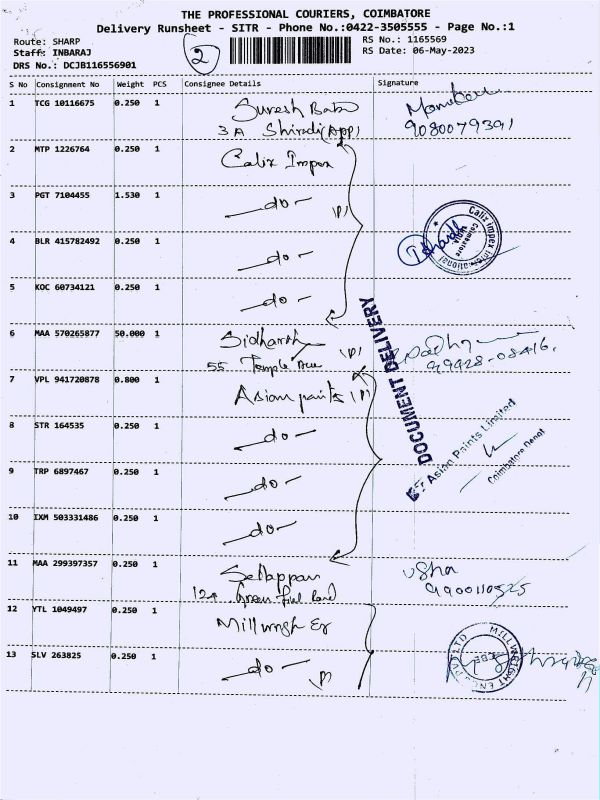 THE PROFESSIONAL COURIERS, COIMBATORE
Delivery Runsheet - SITR - Phone No.:0422-3505555 - Page No.:1
Route: SHARP
Staff: INBARAJ
DRS No.: DCJB116556901
2
RS No.: 1165569
RS Date: 06-May-2023
S No Consignment No Weight PCS Consignee Details Signature
1 TCG 10116675 0.250 1 Suresh Babu
3A Shiradi (App) 9080079391
2 MTP 1226764 0.250 1 Calix Impex
3 PGT 7104455 1.530 1 -do- (P)
4 BLR 415782492 0.250 1 -do- Calix Impex International Coimbatore
5 KOC 60734121 0.250 1 -do-
6 MAA 570265877 50.000 1 Sidharth (P)
55 Temple Ave 99428-08416.
7 VPL 941720878 0.800 1 Asian paints (P)
DOCUMENT DELIVERY
8 STR 164535 1 -do-
Asian Paints Limited
Coimbatore Depot
9 TRP 6897467 0.250 1 -do-
10 IXM 503331486 0.250 1 -do-
11 MAA 299397357 0.250 1 Sellappan Usha
124 Green
12 YTL 1049497 0.250 1 Millwright
13 SLV 263825 0.250 1 -do- (P) MILLWRIGHT ENGG PVT LTD CBE